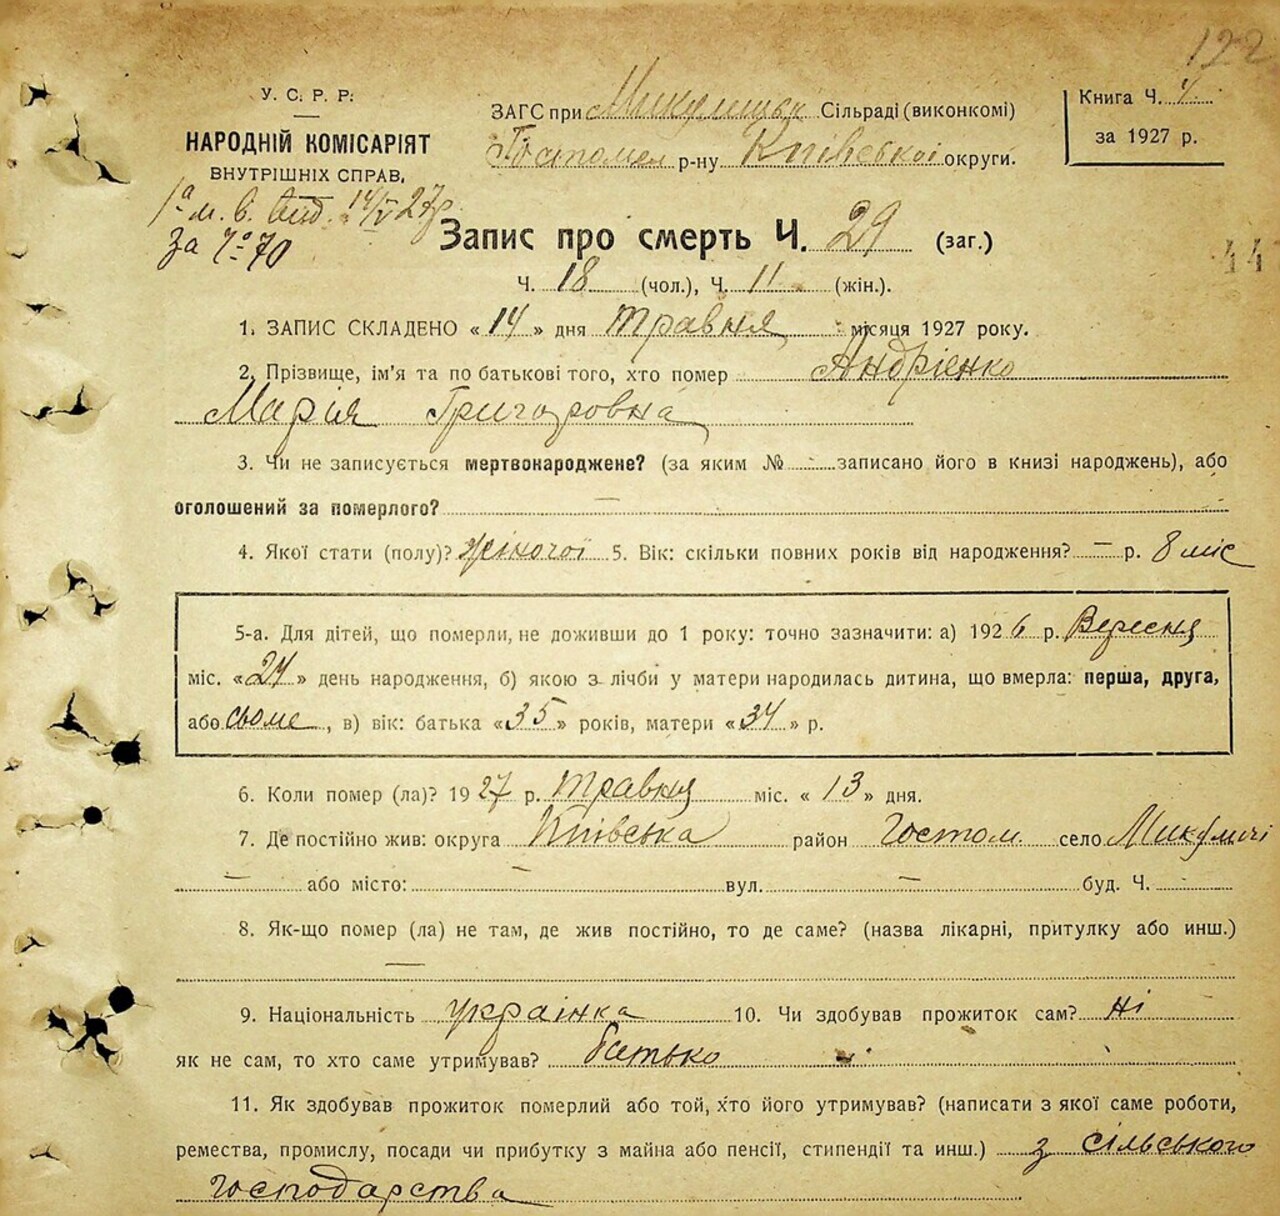 122
У. С. Р. Р.
НАРОДНІЙ КОМІСАРІЯТ
ВНУТРІШНІХ СПРАВ.
ЗАГС при Микулицьк Сільраді (виконкомі)
Гостомел р-ну Київської округи.
Книга Ч. 4
за 1927 р.
1ª м. в. вид. 14/V 27р.
за № 70
Запис про смерть Ч. 29 (заг.)
44
Ч. 18 (чол.), Ч. 11 (жін.).
1. ЗАПИС СКЛАДЕНО « 14 » дня травня місяця 1927 року.
2. Прізвище, ім'я та по батькові того, хто помер Андрієнко
Мария Григоровна
3. Чи не записується мертвонароджене? (за яким № записано його в книзі народжень), або
оголошений за померлого? —
4. Якої стати (полу)? жіночої 5. Вік: скільки повних років від народження? — р. 8 міс
5-а. Для дітей, що померли, не доживши до 1 року: точно зазначити: а) 1926 р. Вересня
міс. «24» день народження, б) якою з лічби у матери народилась дитина, що вмерла: перша, друга,
або сьоме, в) вік: батька «35» років, матери «34» р.
6. Коли помер (ла)? 1927 р. травня міс. « 13 » дня.
7. Де постійно жив: округа Київська район Гостом. село Микуличі
— або місто: — вул. — буд. Ч. —
8. Як-що помер (ла) не там, де жив постійно, то де саме? (назва лікарні, притулку або инш.)
—
9. Національність українка 10. Чи здобував прожиток сам? ні
як не сам, то хто саме утримував? батько
11. Як здобував прожиток померлий або той, хто його утримував? (написати з якої саме роботи,
ремества, промислу, посади чи прибутку з майна або пенсії, стипендії та инш.) з сільського
господарства